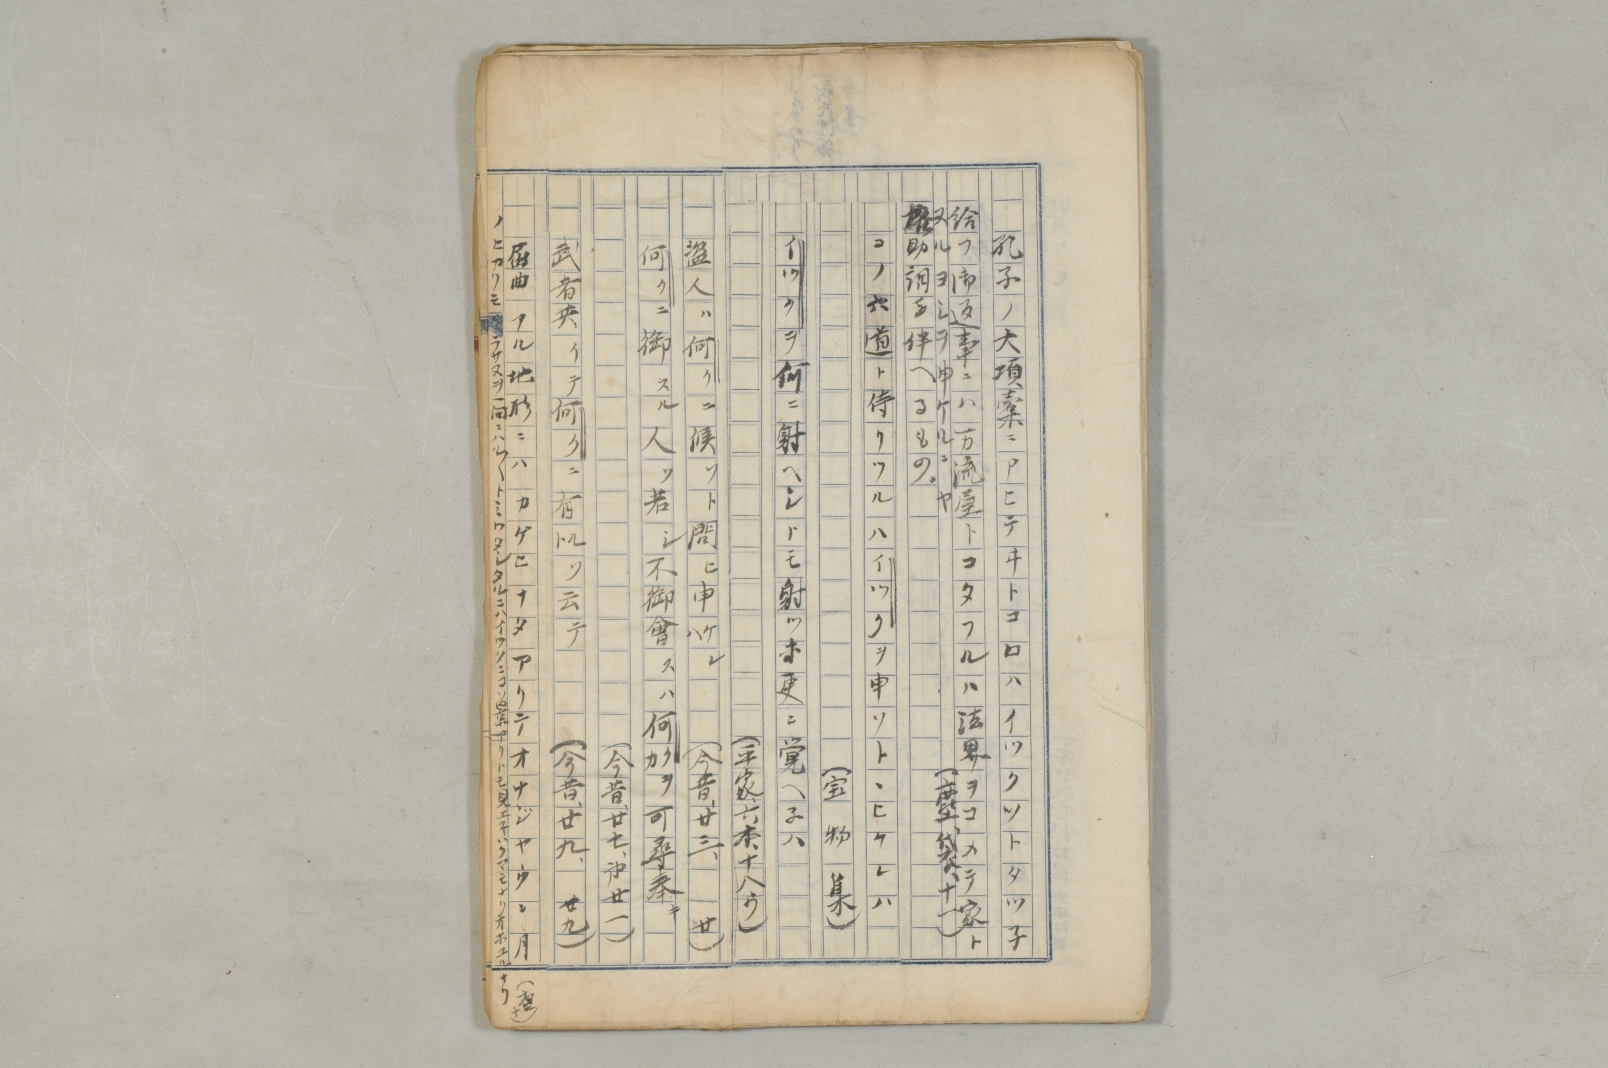 孔子ノ大項槖ニアヒテヰトコロハイツクツトタツ子
給フ御返事ニハ万流屋トコタフルハ法界ヲコメテ家ト
スルヨシヲ申ケルニヤ
(塵袋、十一)
助詞を伴へるもの。
コノ六道ト侍リツルハイツクヲ申ソトヽヒケレハ
(宝物集)
イツクヲ何ニ射ヘシトモ射ツ
更ニ覚ヘ子ハ
(平家、六本、十八ウ)
盗人ハ何クニ候ソト問ヒ申ケレハ
(今昔、廿三、廿)
何クニ御スル人ソ若シ不御會スハ何カクヲ可尋奉キ
(今昔、廿七、第廿一)
武者共イテ何クニ有トルソ云テ
(今昔、廿九、廿九)
屈曲アル地形ニハカゲヒナタアリテオナジヤウニ月
ノヒカリモ